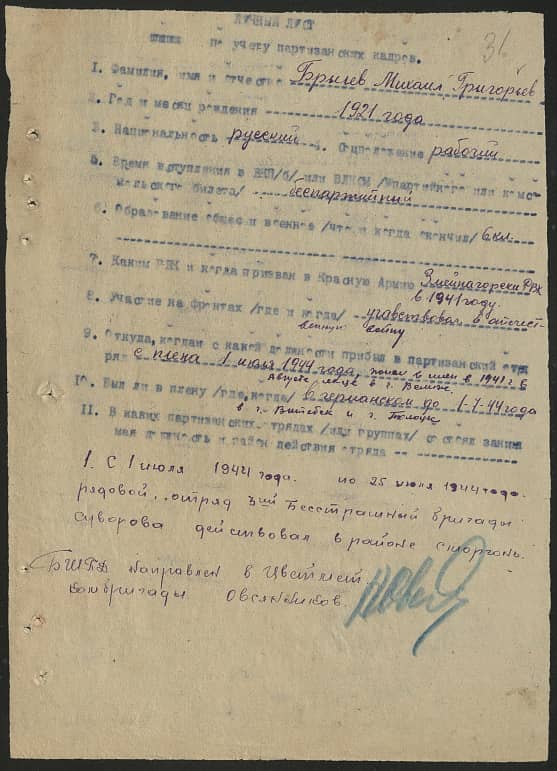 ЛИЧНЫЙ ЛИСТ
31
по учету партизанских кадров.
1. Фамилия, имя и отчество Брысев Михаил Григорьев
2. Год и место рождения 1921 года
3. Национальность русский 4. Соцположение рабочий
5. Время вступления в ВКП/б/ или ВЛКСМ /№партийного или комсо-
мольского билета/ беспартийный
6. Образование общее и военное /что и когда окончил/ 6 кл.
7. Каким РВК и когда призван в Красную Армию Змейногорски РВК
в 1941 году.
8. Участие на фронтах /где и когда/ участвовал в отечест-
венную войну
9. Откуда, когда и с какой должности прибыл в партизанский отр
ряд с плена 1 июля 1944 года, попал в плен в 1941 г в
августе м-це в г. Велиж.
10. Был ли в плену /где, когда/ в германском до 1-7-44 года
в г. Витебск и г. Полоцк
11. В каких партизанских отрядах /или группах/ состоял занимаемая
должность и район действия отряда
1. С 1 июля 1944 года. по 25 июля 1944 года.
рядовой, отряд 3ий Бесстрашный бригады
суворова действовал в районе сморгонь.
БШПД направлен в
комбригады Овсянников.